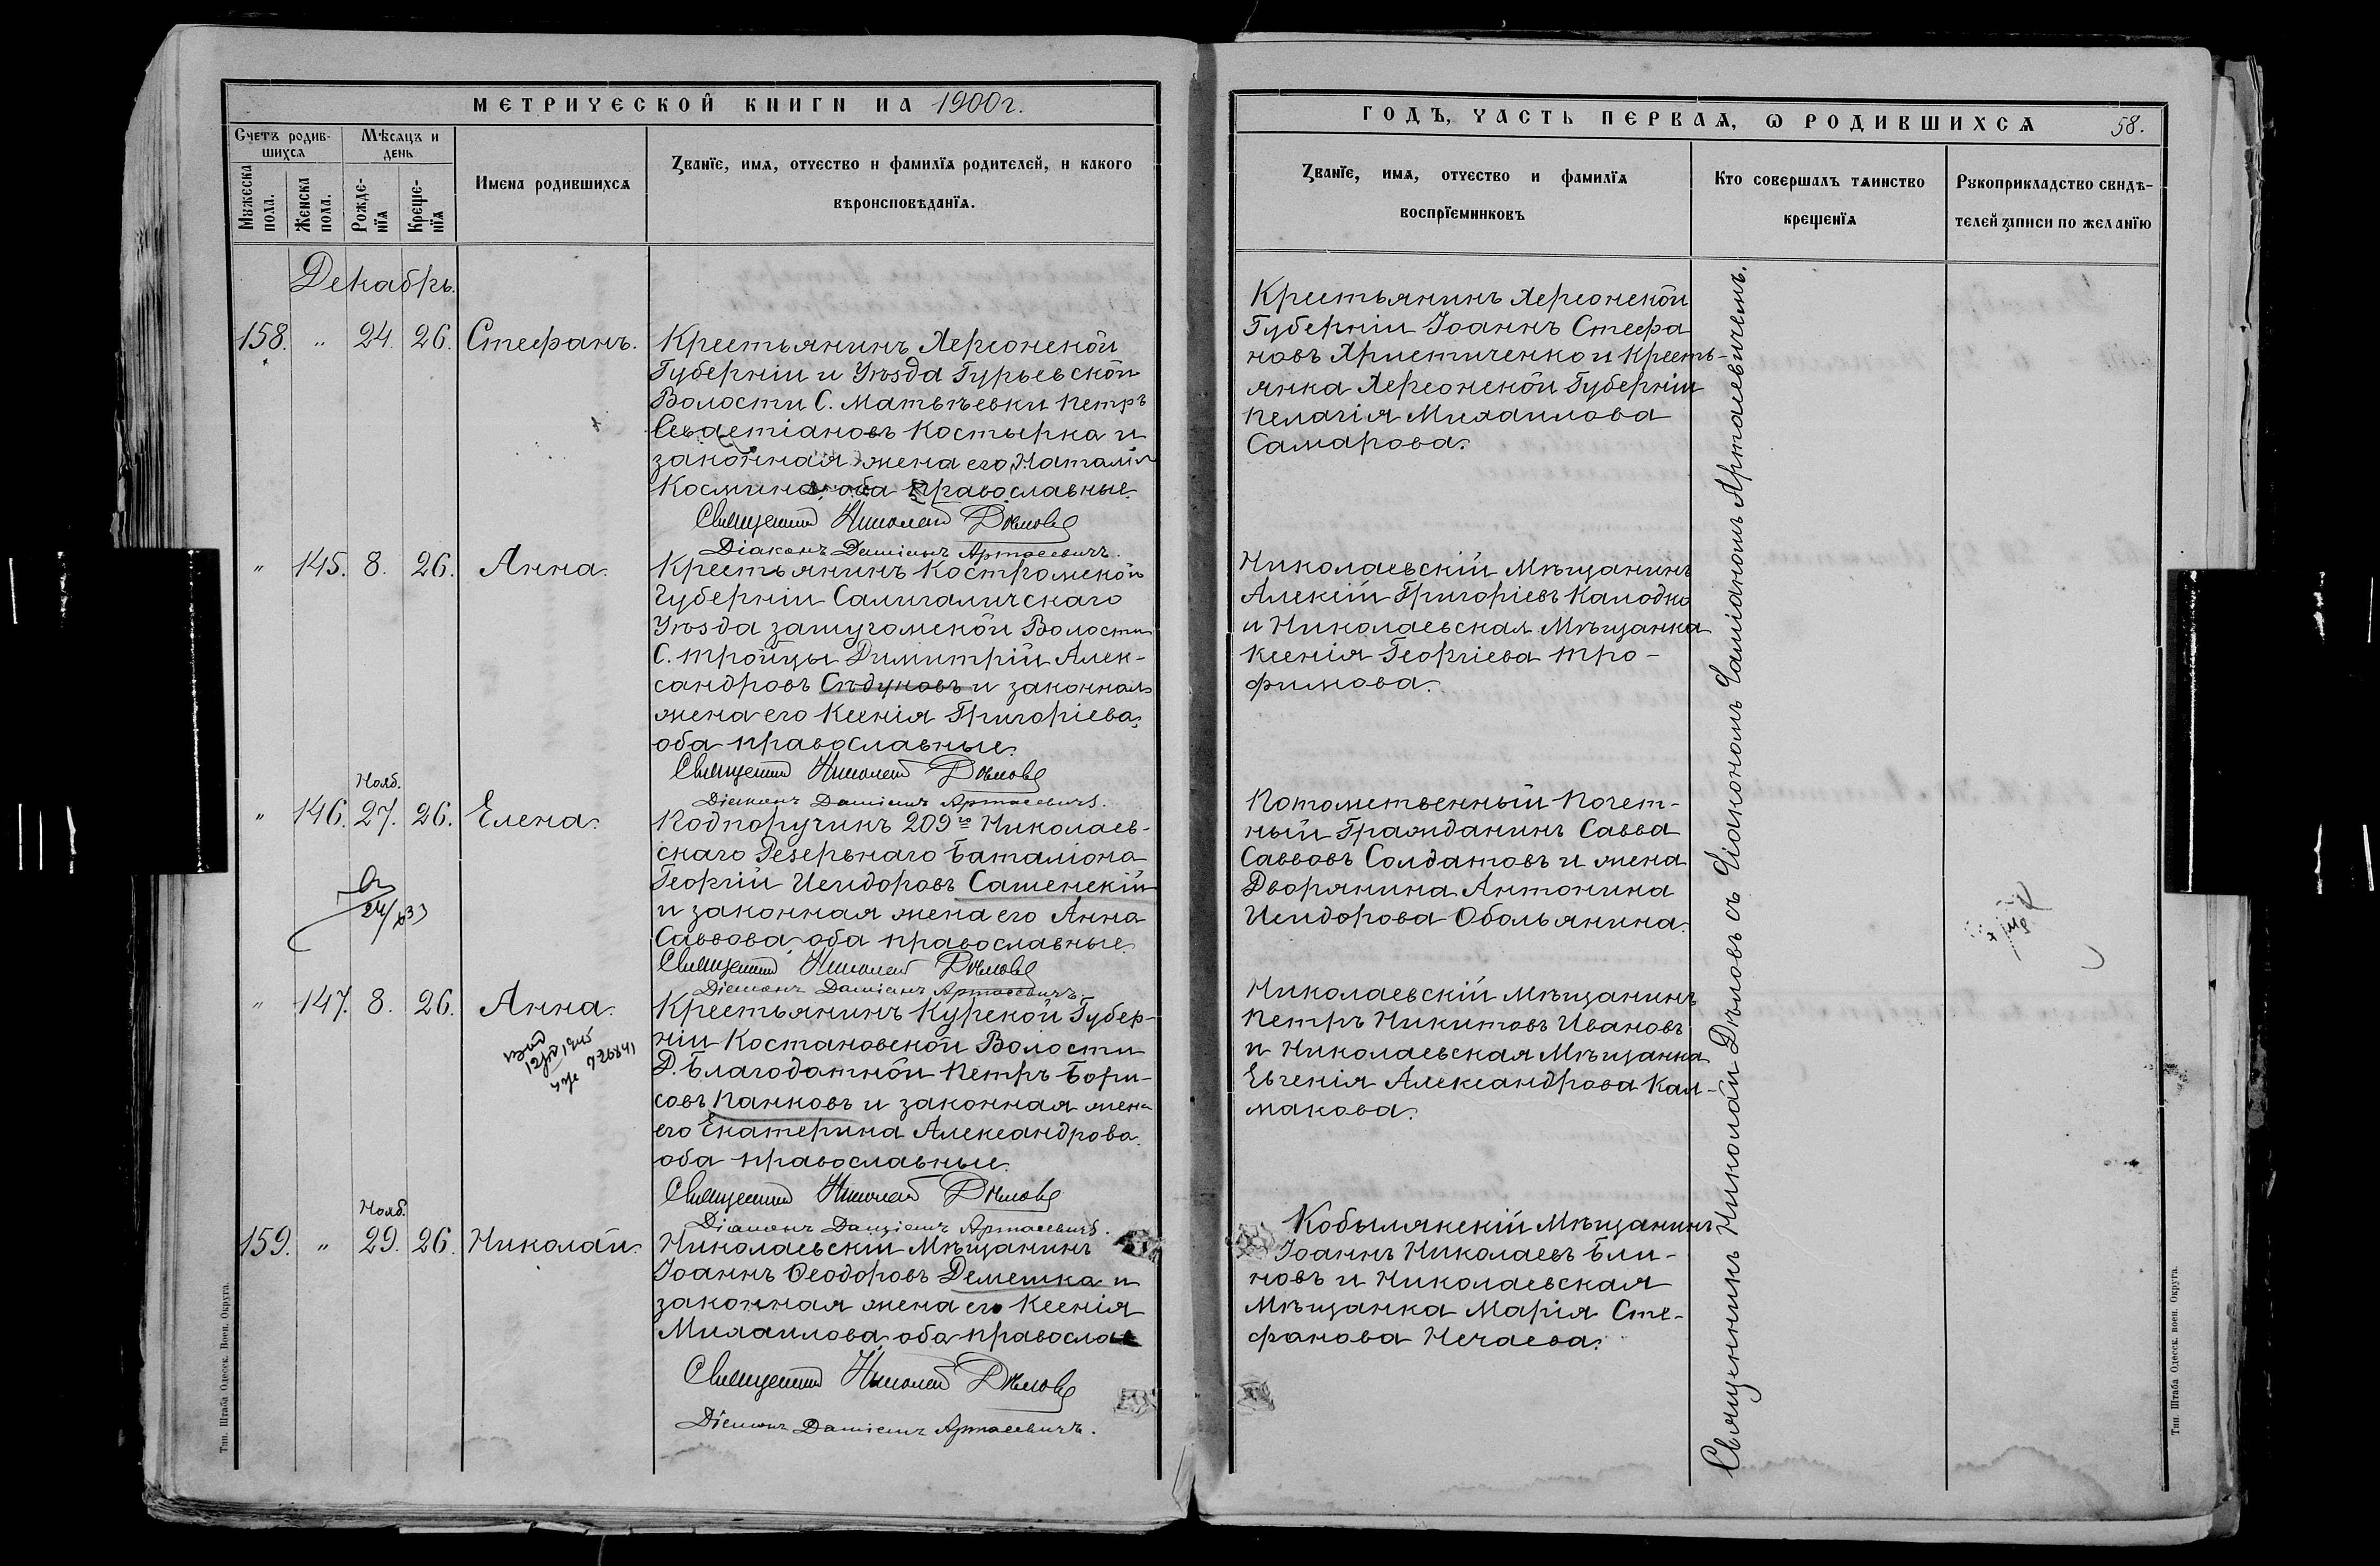 МЕТРИЧЕСКОЙ КНИГИ НА 1900 г.
Счетъ родив-
шихся
Мѣсяцъ и
день
Мужеска
пола.
Женска
пола.
Рожде-
нїя
Креще-
нїя
Имена родившихся
Званїе, имя, отчество и фамилїя родителей, и какого
вѣроисповѣданїя.
Декабрь.
158. " 24. 26. Стефанъ.
Крестьянинъ Херсонской
Губерніи и Уѣзда Гурьевской
Волости С. Матвѣевки Петръ
Севастіановъ Костырка и
законная жена его Наталія
Космина, оба православные.
Священникъ Николай Дѣловъ
Діаконъ Даміанъ Артасевичъ.
" 145. 8. 26. Анна.
Крестьянинъ Костромской
Губерніи Салигаличскаго
Уѣзда Зашугомской Волости
С. Тройцы Димитрій Алек-
сандровъ Сѣдуновъ и законная
жена его Ксенія Григоріева,
оба православные.
Священникъ Николай Дѣловъ
Діаконъ Даміанъ Артасевичъ.
Нояб.
" 146. 27. 26. Елена.
Подпоручикъ 209го Николаев-
скаго Резервнаго Баталіона
Георгій Исидоровъ Сашенскій
и законная жена его Анна
Саввова, оба православные.
Священникъ Николай Дѣловъ
Діаконъ Даміанъ Артасевичъ.
" 147. 8. 26. Анна.
Крестьянинъ Курской Губер-
ніи Костановской Волости
Д. Благодатной Петръ Бори-
совъ Панковъ и законная жена
его Екатерина Александрова.
оба православные.
Священникъ Николай Дѣловъ
Діаконъ Даміанъ Артасевичъ.
Нояб.
159. " 29. 26. Николай.
Николаевскій Мѣщанинъ
Іоаннъ Ѳеодоровъ Демешка и
законная жена его Ксенія
Михаилова, оба православ
Священникъ Николай Дѣловъ
Діаконъ Даміанъ Артасевичъ.
Тип. Штаба Одесск. Воен. Округа.
ГОДЪ, ЧАСТЬ ПЕРВАЯ, Ѡ РОДИВШИХСЯ 58.
Званїе, имя, отчество и фамилїя
воспрїемниковъ
Кто совершалъ таинство
крещенїя
Рукоприкладство свидѣ-
телей записи по желанїю
Крестьянинъ Херсонской
Губерніи Іоаннъ Стефа
новъ Христиченко и Кресть-
янка Херсонской Губерніи
Пелагія Михаилова
Самарова.
Николаевскій Мѣщанинъ
Алексій Григоріевъ Калодко
и Николаевская Мѣщанка
Ксенія Георгіева Тро-
фимова.
Потомственный Почет-
ный Гражданинъ Савва
Саввовъ Солдатовъ и жена
Дворянина Антонина
Исидорова Обольянина.
Николаевскій Мѣщанинъ
Петръ Никитовъ Ивановъ
и Николаевская Мѣщанка
Евгенія Александрова Кал-
макова.
Кобылякскій Мѣщанинъ
Іоаннъ Николаевъ Бли-
новъ и Николаевская
Мѣщанка Марія Сте-
фанова Нечаева.
Священникъ Николай Дѣловъ съ Діакономъ Даміаномъ Артасевичемъ.
Тип. Штаба Одесск. воен. Округа.